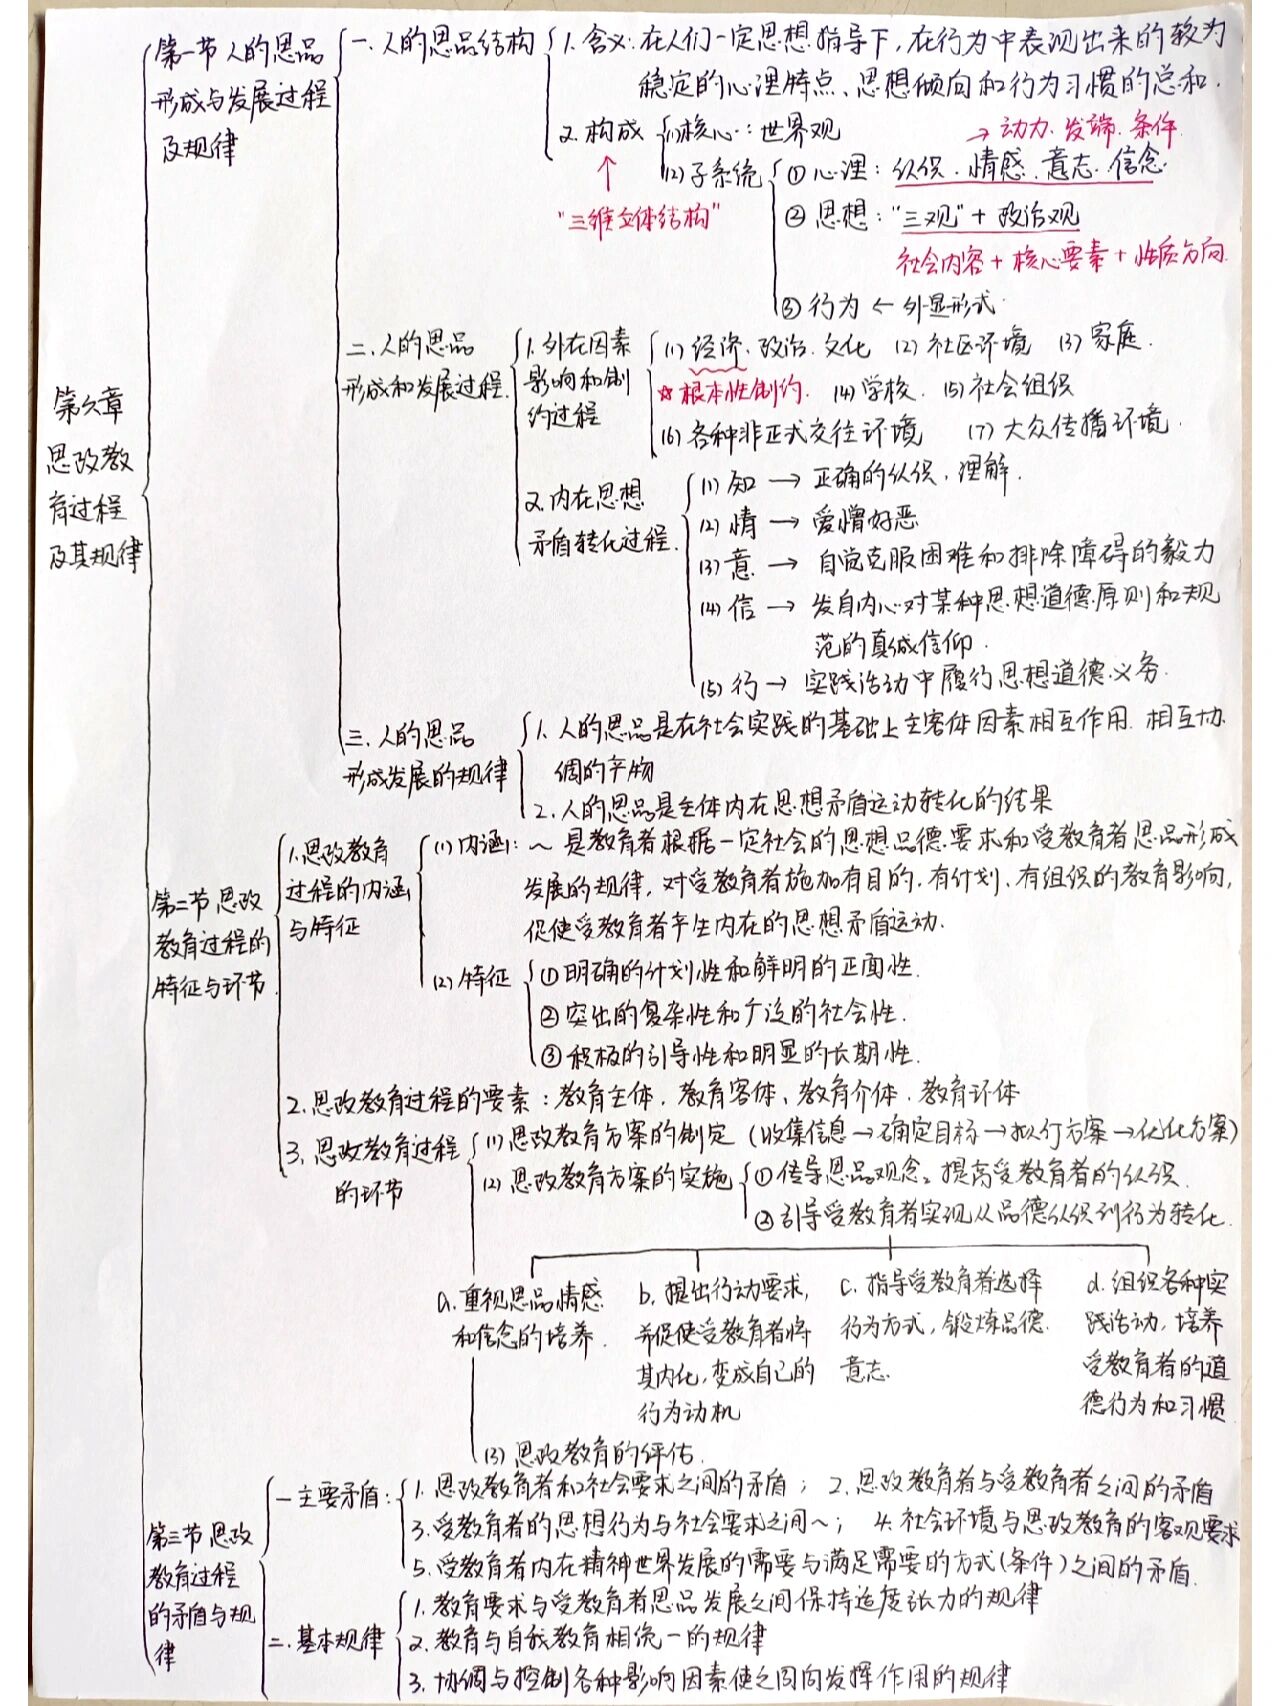 第六章
思政教
育过程
及其规律
第一节 人的思品
形成与发展过程
及规律
一、人的思品结构
1. 含义:在人们一定思想指导下,在行为中表现出来的较为
稳定的心理特点、思想倾向和行为习惯的总和.
2. 构成
↑
"三维立体结构"
(1)核心:世界观
(2)子系统
→ 动力. 发端. 条件.
① 心理: 认识、情感、意志、信念.
② 思想: "三观" + 政治观
社会内容 + 核心要素 + 性质方向.
③ 行为 ← 外显形式.
二、人的思品
形成和发展过程.
1. 外在因素
影响和制
约过程
(1) 经济、政治、文化 (2) 社区环境 (3) 家庭.
☆ 根本性制约. (4) 学校. (5) 社会组织
(6) 各种非正式交往环境 (7) 大众传播环境.
2. 内在思想
矛盾转化过程.
(1) 知 → 正确的认识、理解.
(2) 情 → 爱憎好恶
(3) 意 → 自觉克服困难和排除障碍的毅力
(4) 信 → 发自内心对某种思想道德原则和规
范的真诚信仰.
(5) 行 → 实践活动中履行思想道德义务.
三、人的思品
形成发展的规律
1. 人的思品是在社会实践的基础上主客体因素相互作用. 相互协
调的产物
2. 人的思品是主体内在思想矛盾运动转化的结果
第二节 思政
教育过程的
特征与环节.
1. 思政教育
过程的内涵
与特征
(1) 内涵: ~ 是教育者根据一定社会的思想品德要求和受教育者思品形成
发展的规律, 对受教育者施加有目的、有计划、有组织的教育影响,
促使受教育者产生内在的思想矛盾运动.
(2) 特征
① 明确的计划性和鲜明的正面性.
② 突出的复杂性和广泛的社会性.
③ 积极的引导性和明显的长期性.
2. 思政教育过程的要素: 教育主体、教育客体、教育介体、教育环体
3. 思政教育过程
的环节
(1) 思政教育方案的制定 (收集信息→确定目标→拟订方案→优化方案)
(2) 思政教育方案的实施
① 传导思品观念, 提高受教育者的认识.
② 引导受教育者实现从品德认识到行为转化.
a. 重视思品情感
和信念的培养.
b. 提出行动要求,
并促使受教育者将
其内化, 变成自己的
行为动机
c. 指导受教育者选择
行为方式, 锻炼品德
意志.
d. 组织各种实
践活动, 培养
受教育者的道
德行为和习惯.
(3) 思政教育的评估.
第三节 思政
教育过程
的矛盾与规
律
一 主要矛盾:
1. 思政教育者和社会要求之间的矛盾; 2. 思政教育者与受教育者之间的矛盾
3. 受教育者的思想行为与社会要求之间~; 4. 社会环境与思政教育的客观要求
5. 受教育者内在精神世界发展的需要与满足需要的方式(条件)之间的矛盾.
二. 基本规律
1. 教育要求与受教育者思品发展之间保持适度张力的规律
2. 教育与自我教育相统一的规律
3. 协调与控制各种影响因素使之同向发挥作用的规律